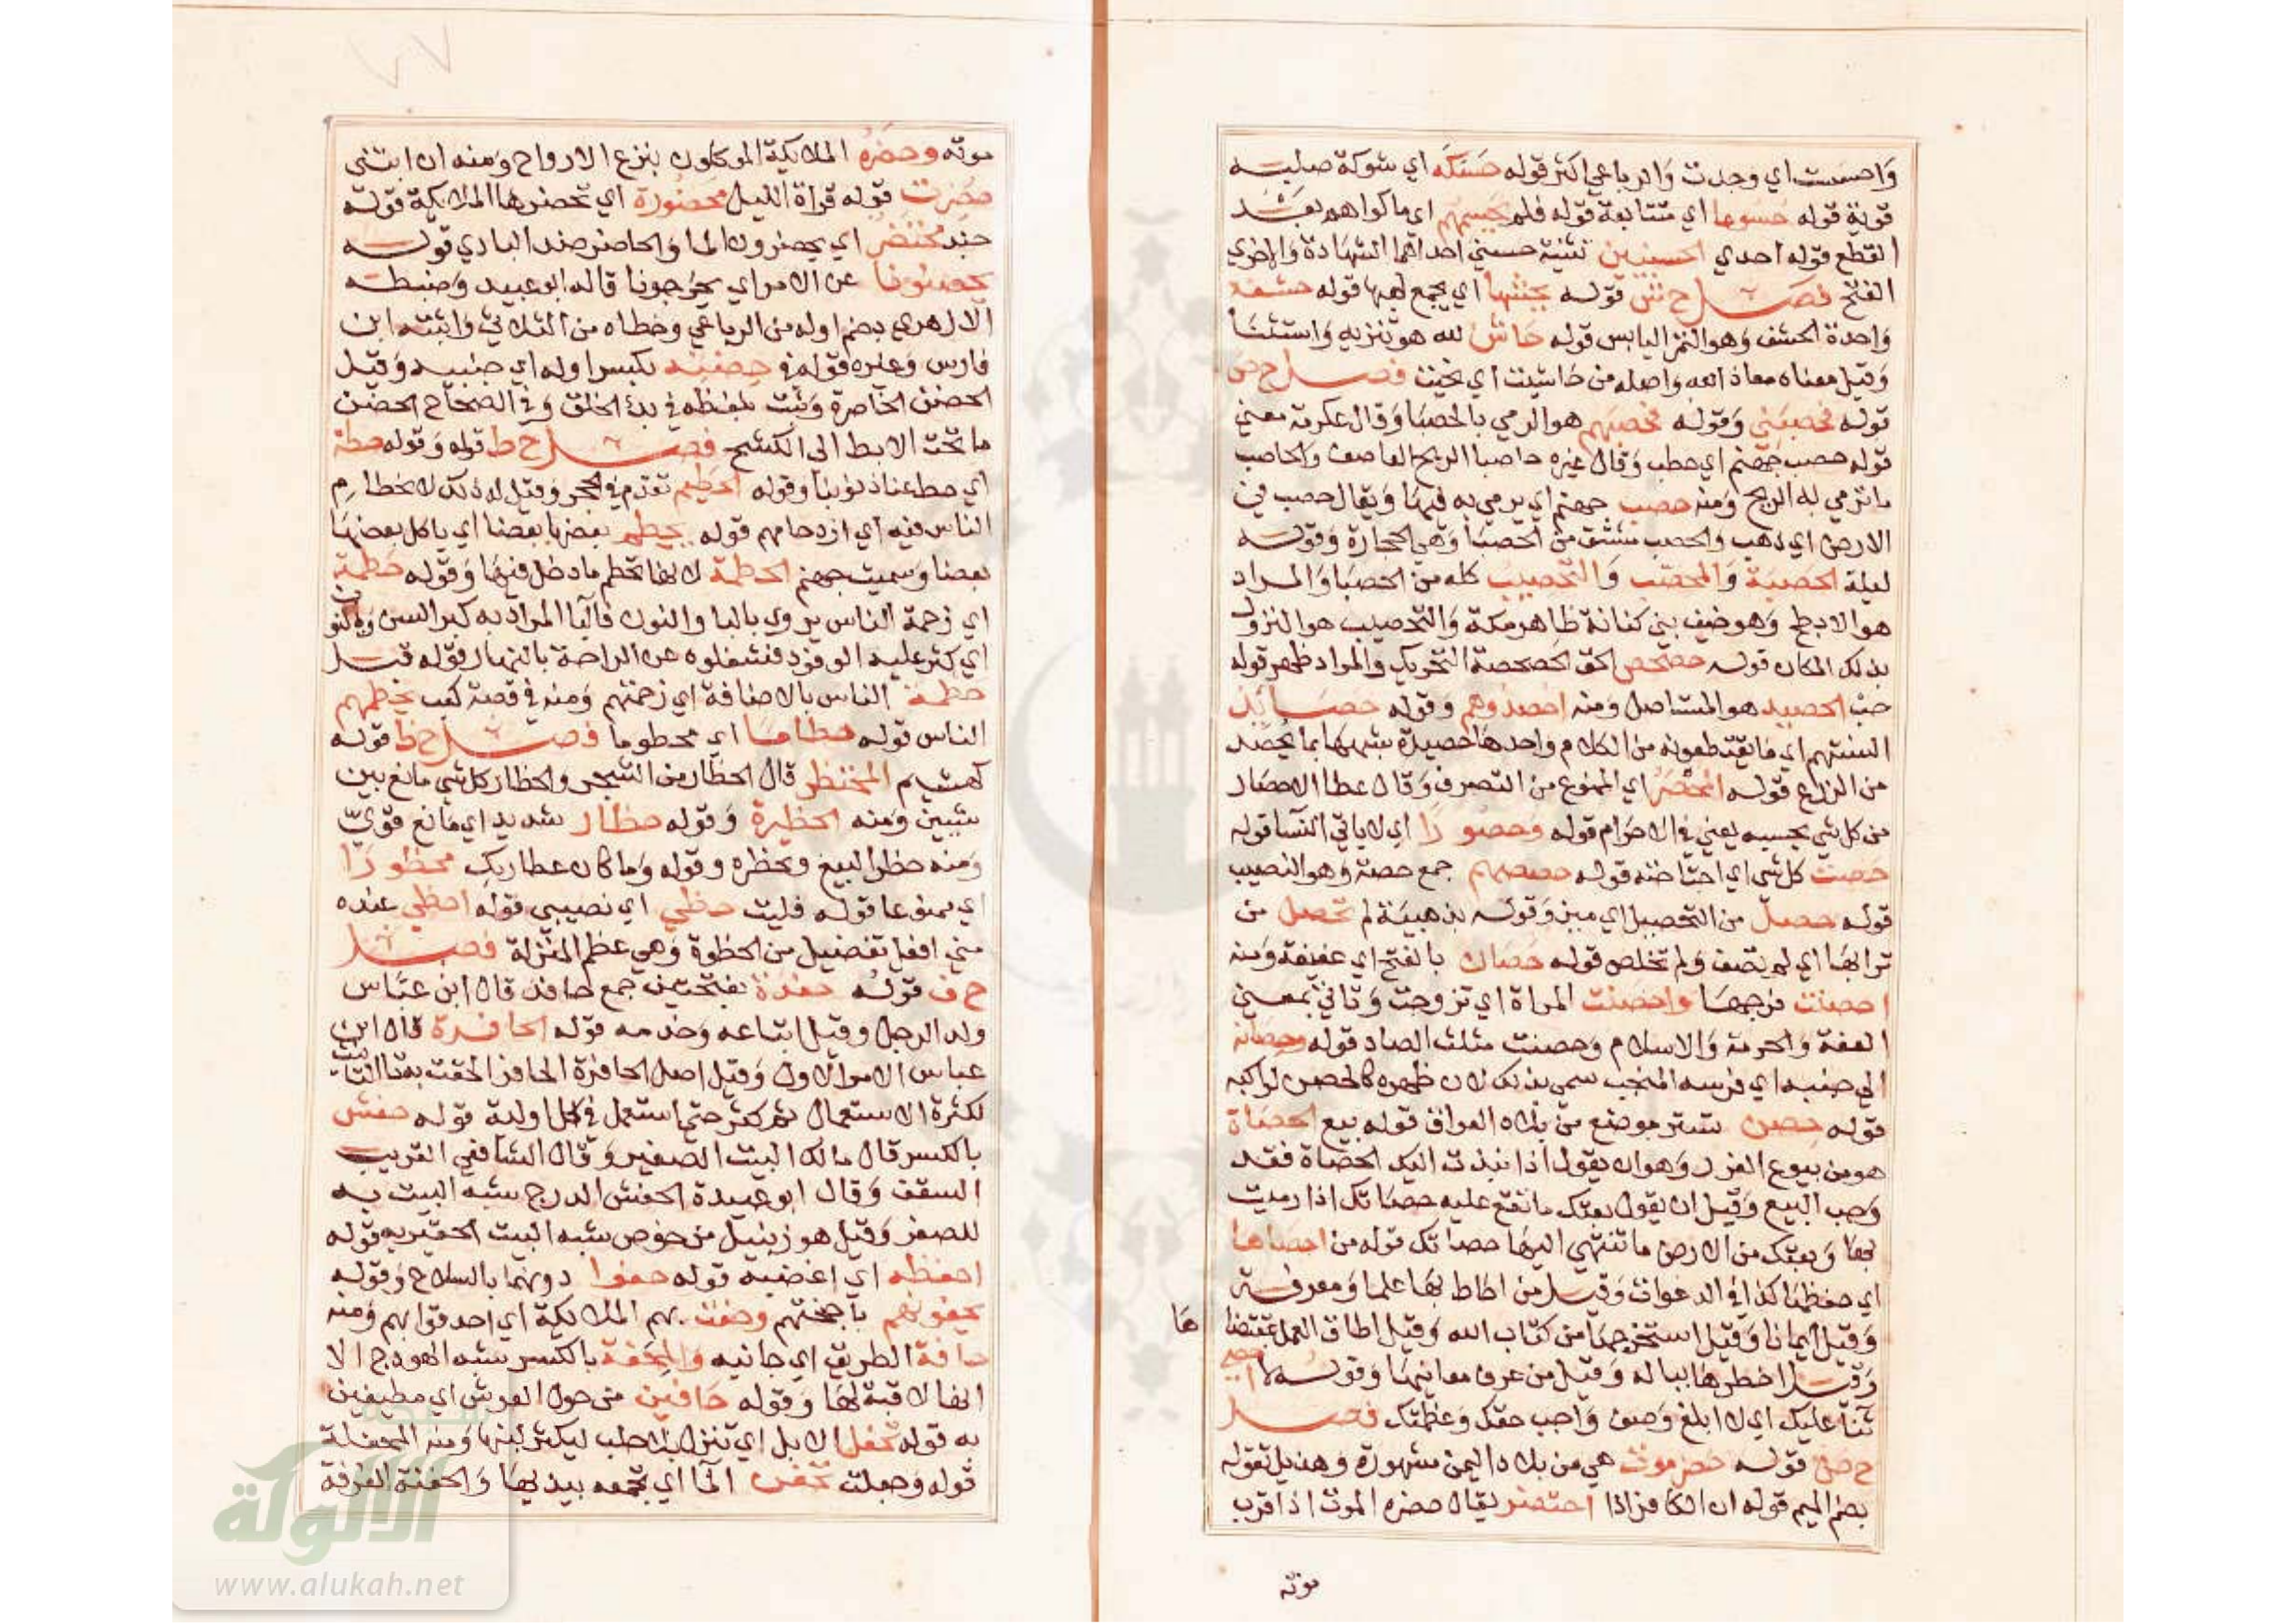 واحسست اي وجدت والرباعي اكثر قوله حسكه اي شوكة صلبة
قوية قوله حسوما اي متتابعة قوله فلم يحسمهم اي ما كواهم بعد
القطع قوله احدي الحسنيين تثنية حسني احداهما الشهادة والاخري
الفتح فصل ح ش قوله يحشها اي يجمع لهبها قوله حشفه
واحدة الحشف وهو التمر اليابس قوله حاش لله هو تنزيه واستثنا
وقيل معناه معاذ الله واصله من حاشيت اي نحيت فصل ح ص
قوله فحصبني وقوله فحصبهم هو الرمي بالحصبا وقال عكرمة معني
قوله حصب جهنم اي حطب وقال غيره حاصبا الريح العاصف والحاصب
ما ترمي به الريح ومنه حصب جهنم اي يرمي به فيها ويقال حصب في
الارض اي ذهب والحصب مشتق من الحصبا وهي الحجارة وقوله
ليلة الحصبة والمحصب والتحصيب كله من الحصبا والمراد
هو الابطح وهو خيف بني كنانة ظاهر مكة والتحصيب هو النزول
بذلك المكان قوله حصحص الحق الحصحصة التحريك والمراد ظهر قوله
حب الحصيد هو المستاصل ومنه احصدوهم وقوله حصايد
السنتهم اي ما يقتطعونه من الكلام واحدها حصيدة شبهها بما يحصد
من الزرع قوله المحصر اي الممنوع من التصرف وقال عطا الاحصار
من كل شي يحبسه يعني في الاحرام قوله وحصورا اي لا ياتي النسا قوله
حصت كل شي اي اجتاحته قوله حصصهم جمع حصة وهو النصيب
قوله حصل من التحصيل اي ميز وقوله بذهيبة لم تحصل من
ترابها اي لم تصف ولم تخلص قوله حصان بالفتح اي عفيفة ومنه
احصنت فرجها واحصنت المراة اي تزوجت وتاتي بمعني
العفة والحرمة والاسلام وحصنت مثلث الصاد قوله وحصانه
الي جنبه اي فرسه المنجب سمي بذلك لان ظهره كالحصن لراكبه
قوله حصن تستر موضع من بلاد العراق قوله بيع الحصاة
هو من بيوع الغرر وهو ان يقول اذا نبذت اليك الحصاة فقد
وجب البيع وقيل ان يقول بعتك ما تقع عليه حصاتك اذا رميت
بها وبعتك من الارض ما تنتهي اليها حصاتك قوله من احصاها
اي حفظها كذا في الدعوات وقيل من احاط بها علما ومعرفة
وقيل ايمانا وقيل استخرجها من كتاب الله وقيل اطاق العمل بمقتضا
ها
وقيل اخطرها بباله وقيل من عرف معانيها وقوله لا احصي
ثنا عليك اي لا ابلغ وصف واجب حقك وعظمتك فصل
ح ض قوله حضرموت هي من بلاد اليمن مشهورة وهذيل تقوله
بضم الميم قوله ان الكافر اذا احتضر يقال حضره الموت اذا قرب
موته
موته وحضره الملايكة الموكلون بنزع الارواح ومنه ان ابنتي
حضرت قوله قراة الليل محضورة اي تحضرها الملايكة قوله
محتضر اي يحضرون الما والحاضر ضد البادي قوله
يحضنونا عن الامر اي يخرجونا قاله ابو عبيد وضبطه
الازهري بضم اوله من الرباعي وخطاه من الثلاثي واثبته ابن
فارس وغيره قوله في حضنيه بكسر اوله اي جنبيه وقيل
الحضن الخاصرة وثبت بلفظه في بدء الخلق وفي الصحاح الحضن
ما تحت الابط الى الكشح فصل ح ط قوله وقوله حطة
اي حط عنا ذنوبنا وقوله الحطيم تقدم في الحجر وقيل له ذلك لانحطام
الناس فيه اي ازدحامهم قوله يحطم بعضها بعضا اي ياكل بعضها
بعضا وسميت جهنم الحطمة لانها تحطم ما دخل فيها وقوله حطمة
اي زحمة الناس يروي بالبا والنون فالبا المراد به كبر السن وبالنون
اي كثر عليه الوفود فشغلوه عن الراحة بالنهار قوله قبل
حطمة الناس بالاضافة اي زحمتهم ومنه في قصة كعب يحطمهم
الناس قوله حطاما اي محطوما فصل ح ظ قوله
كهشيم المحتظر قال الحظار من الشجر والحظار كل شي مانع بين
شيين ومنه الحظيرة وقوله حظار شديد اي مانع قوي
ومنه حظر البيع ويحظره وقوله وما كان عطا ربك محظورا
اي ممنوعا قوله فليت حظي اي نصيبي قوله احظي عنده
مني افعل تفضيل من الحظوة وهي عظم المنزلة فصل
ح ف قوله حفدة بفتحتين جمع حافد قال ابن عباس
ولد الرجل وقيل اتباعه وخدمه قوله الحافرة قال ابن
عباس الامر الاول وقيل اصل الحافرة الحافر الحقت به تا التانيث
لكثرة الاستعمال ثم كثر حتي استعمل في كل اولية قوله حفش
بالكسر قال مالك البيت الصغير وقال الشافعي القريب
السقف وقال ابو عبيدة الحفش الدرج شبه البيت به
للصغر وقيل هو زنبيل من خوص شبه البيت الحقير به قوله
احفظه اي اغضبه قوله حفوا دونهما بالسلاح وقوله
يحفونهم باجنحتهم وحفت بهم الملايكة اي احدقوا بهم ومنه
حافة الطريق اي جانبه والمحفة بالكسر شبه الهودج الا
انها لا قبة لها وقوله حافين من حول العرش اي مطيفين
به قوله تحفل الابل اي تترك بلا حلب ليكثر لبنها ومنه المحفلة
قوله وجعلت تحفن الما اي تجمعه بيديها والحفنة الغرفة
الألوكة
www.alukah.net